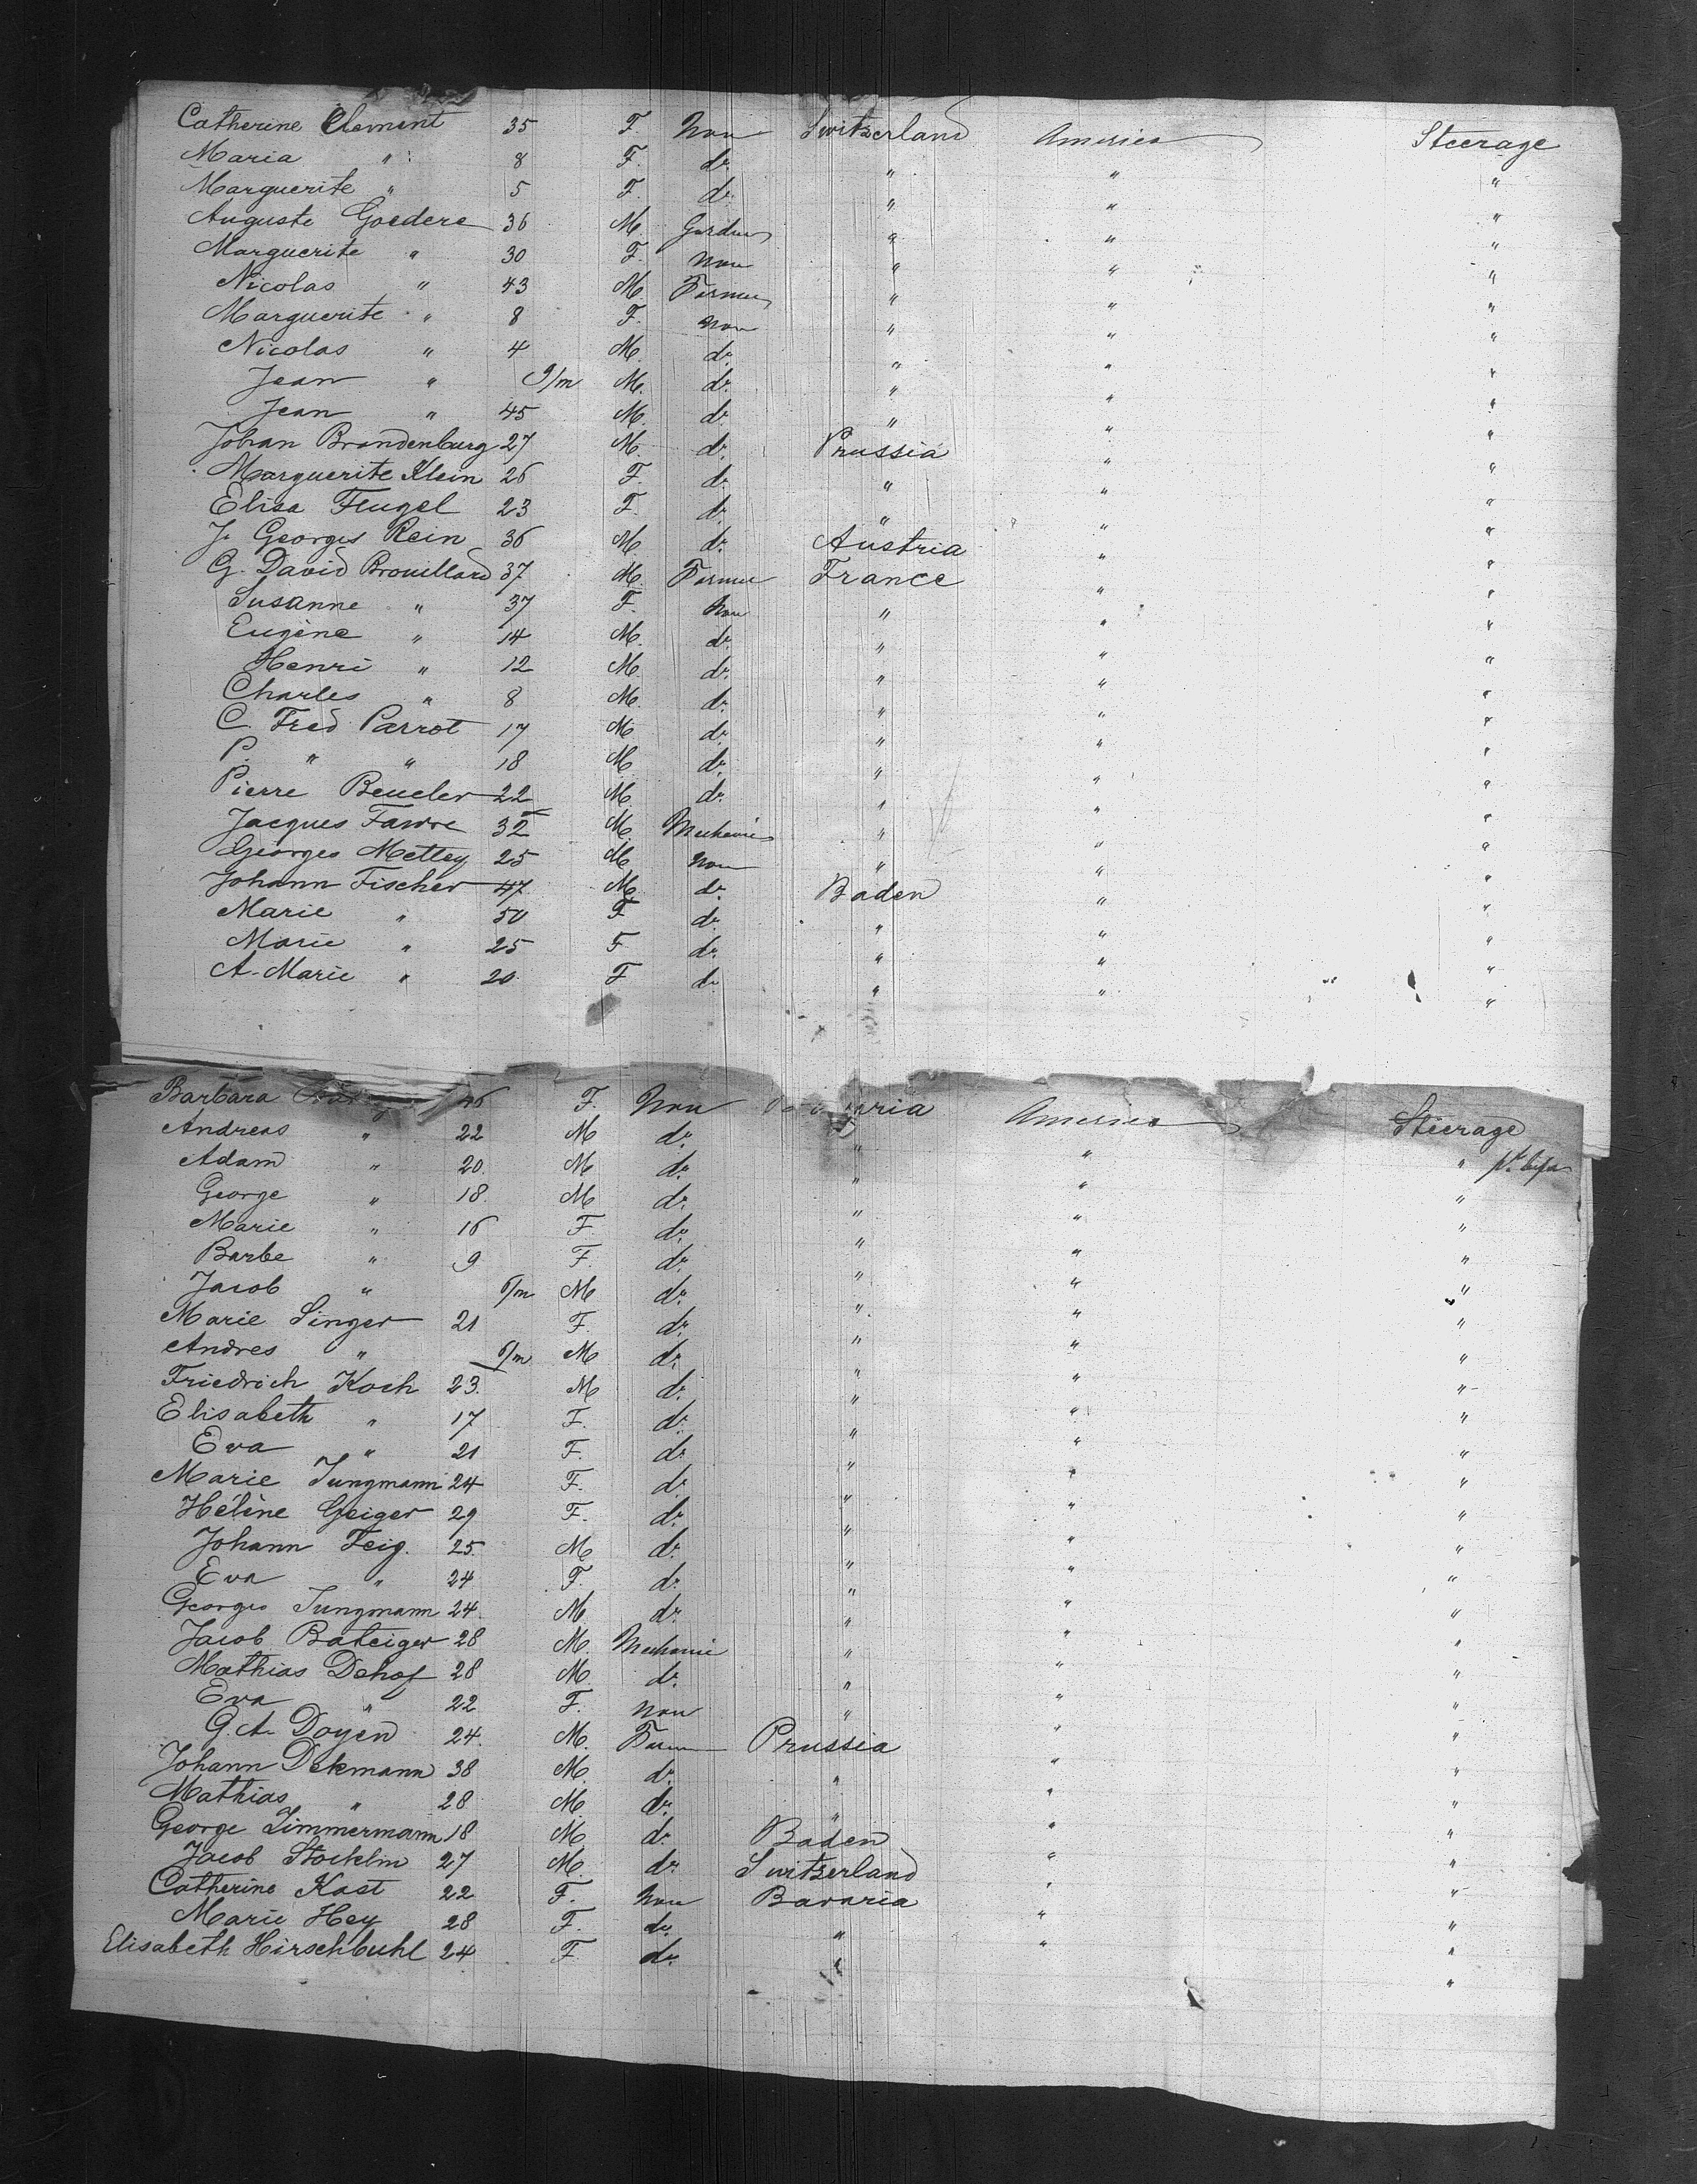 Catherine Clement 35 F. Non Switzerland America Steerage
Maria " 8 F. do. " " "
Marguerite " 5 F. do. " " "
Auguste Goedere 36 M. Garduer " " "
Marguerite " 30 F. Non " " "
Nicolas " 43 M. Farmer " " "
Marguerite " 8 F. Non " " "
Nicolas " 4 M. do. " " "
Jean " 9/m M. do. " " "
Jean " 45 M. do. " " "
Johan Brandenburg 27 M. do. Prussia " "
Marguerite Klein 26 F. do. " " "
Elisa Feugel 23 F. do. " " "
J. Georges Rein 36 M. do. Austria " "
G. David Brouillard 37 M. Farmer France " "
Susanne " 37 F. Non " " "
Eugène " 14 M. do. " " "
Henri " 12 M. do. " " "
Charles " 8 M. do. " " "
C. Fred Parrot 17 M. do. " " "
P. " " 18 M. do. " " "
Pierre Beucler 22 M. do. " " "
Jacques Favre 32 M. Mechanic " " "
Georges Mettey 25 M. Non " " "
Johann Fischer 47 M. do. Baden " "
Marie " 50 F. do. " " "
Marie " 25 F. do. " " "
A. Marie " 20 F. do. " " "
Barbara 46 F. Non America Steerage
Andreas " 22 M do. " " "
Adam " 20 M do. " " "
George " 18 M do. " " "
Marie " 16 F. do. " " "
Barbe " 9 F. do. " " "
Jacob " 6/m M do. " " "
Marie Singer 21 F. do. " " "
Andres " 6/m M do. " " "
Friedrich Koch 23. M do. " " "
Elisabeth " 17 F. do. " " "
Eva " 21 F. do. " " "
Marie Jungmann 24 F. do. " " "
Hélène Geiger 29 F. do. " " "
Johann Feig. 25. M. do. " " "
Eva " 24 F. do. " " "
Georges Jungmann 24. M. do. " " "
Jacob Bateiger 28 M. Mechanic " " "
Mathias Dehof 28 M. do. " " "
Eva " 22 F. Non " " "
G. A. Doyen 24. M. Farmer Prussia " "
Johann Dekmann 38 M. do. " " "
Mathias " 28 M. do. " " "
George Zimmermann 18 M. do. Baden " "
Jacob Stocklin 27 M. do. Switzerland " "
Catherine Kast 22 F. Non Bavaria " "
Marie Hey 28 F. do. " " "
Elisabeth Hirschbuhl 24 F. do. " " "